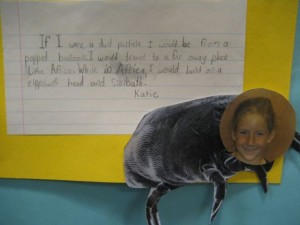 If I were a dust particle I would be from a
popped balloon. I would travel to a far away place
Like Africa. While in Africa, I would land on a
elephants head and sunbath.
Katie